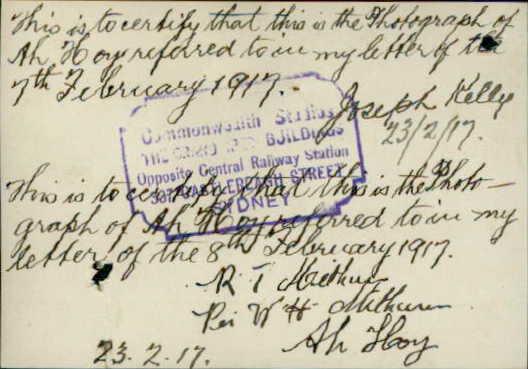 This is to certify that this is the Photograph of
Ah Hoy referred to in my letter of the
7th February 1917.
Joseph Kelly
23/2/17.
Commonwealth Studios
THE BUILDINGS
Opposite Central Railway Station
STREET
SYDNEY
This is to certify that this is the Photo-
graph of Ah Hoy referred to in my
letter of the 8th February 1917.
R T
Per W H
Ah Hoy
23.2.17.